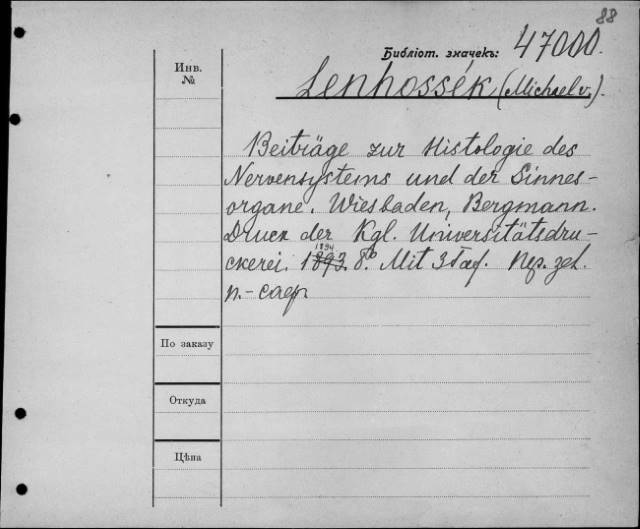 88
Библіот. значекъ: 47000.
Инв.
№
Lenhossék (Michael v.).
Beiträge zur Histologie des
Nervensystems und der Sinnes-
organe. Wiesbaden, Bergmann.
Druck der Kgl. Universitätsdru-
ckerei. 1893. 1894 8º Mit 3 Taf.
По заказу
Откуда
Цѣна